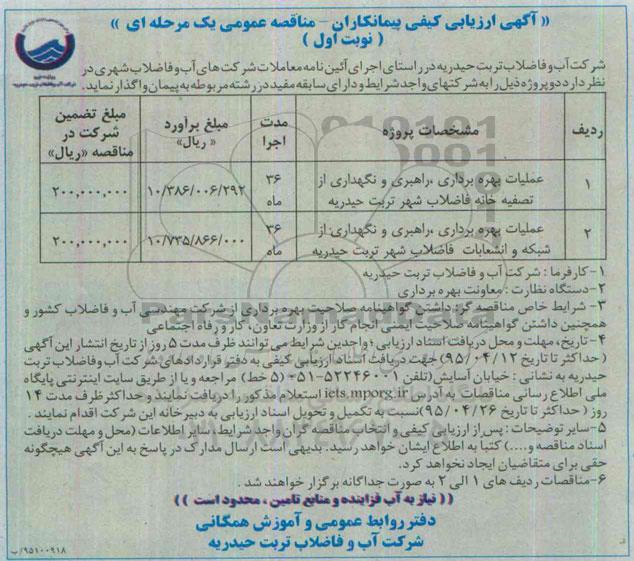 « آگهی ارزیابی کیفی پیمانکاران – مناقصه عمومی یک مرحله ای »
( نوبت اول )
شرکت آب و فاضلاب تربت حیدریه در راستای اجرای آئین نامه معاملات شرکت های آب و فاضلاب شهری در
نظر دارد دو پروژه ذیل را به شرکتهای واجد شرایط و دارای سابقه مفید در رشته مربوطه به پیمان واگذار نماید.
ردیف	مشخصات پروژه	مدت اجرا	مبلغ برآورد « ریال»	مبلغ تضمین شرکت در مناقصه «ریال»
۱	عملیات بهره برداری ،راهبری و نگهداری از تصفیه خانه فاضلاب شهر تربت حیدریه	۳۶ ماه	۱۰/۳۸۶/۰۰۶/۲۹۲	۲۰۰,۰۰۰,۰۰۰
۲	عملیات بهره برداری ،راهبری و نگهداری از شبکه و انشعابات فاضلاب شهر تربت حیدریه	۳۶ ماه	۱۰/۷۳۵/۸۶۶/۰۰۰	۲۰۰,۰۰۰,۰۰۰
۱-کارفرما : شرکت آب و فاضلاب تربت حیدریه
۲-دستگاه نظارت : معاونت بهره برداری
۳- شرایط خاص مناقصه گر: داشتن گواهینامه صلاحیت بهره برداری از شرکت مهندسی آب و فاضلاب کشور و
همچنین داشتن گواهینامه صلاحیت ایمنی انجام کار از وزارت تعاون، کار و رفاه اجتماعی
۴- تاریخ، مهلت و محل دریافت اسناد ارزیابی ؛ واجدین شرایط می توانند ظرف مدت ۵ روز از تاریخ انتشار این آگهی
( حداکثر تا تاریخ ۹۵/۰۴/۱۲) جهت دریافت اسناد ارزیابی کیفی به دفتر قراردادهای شرکت آب و فاضلاب تربت
حیدریه به نشانی : خیابان آسایش(تلفن ۵۲۲۴۶۰۰۱-۰۵۱ (۵ خط) مراجعه و یا از طریق سایت اینترنتی پایگاه
ملی اطلاع رسانی مناقصات به آدرس iets.mporg.ir استعلام مذکور را دریافت نمایند و حداکثر ظرف مدت ۱۴
روز ( حداکثر تا تاریخ ۹۵/۰۴/۲۶)نسبت به تکمیل و تحویل اسناد ارزیابی به دبیرخانه این شرکت اقدام نمایند .
۵-سایر توضیحات : پس از ارزیابی کیفی و انتخاب مناقصه گران واجد شرایط ،سایر اطلاعات (محل و مهلت دریافت
اسناد مناقصه و....) کتبا به اطلاع ایشان خواهد رسید. بدیهی است ارسال مدارک در پاسخ به این آگهی هیچگونه
حقی برای متقاضیان ایجاد نخواهد کرد.
۶-مناقصات ردیف های ۱ الی ۲ به صورت جداگانه برگزار خواهند شد .
( ( نیاز به آب فزاینده و منابع تامین ، محدود است ) )
دفتر روابط عمومی و آموزش همگانی
شرکت آب و فاضلاب تربت حیدریه
۹۵۱۰۰۹۱۸/ب